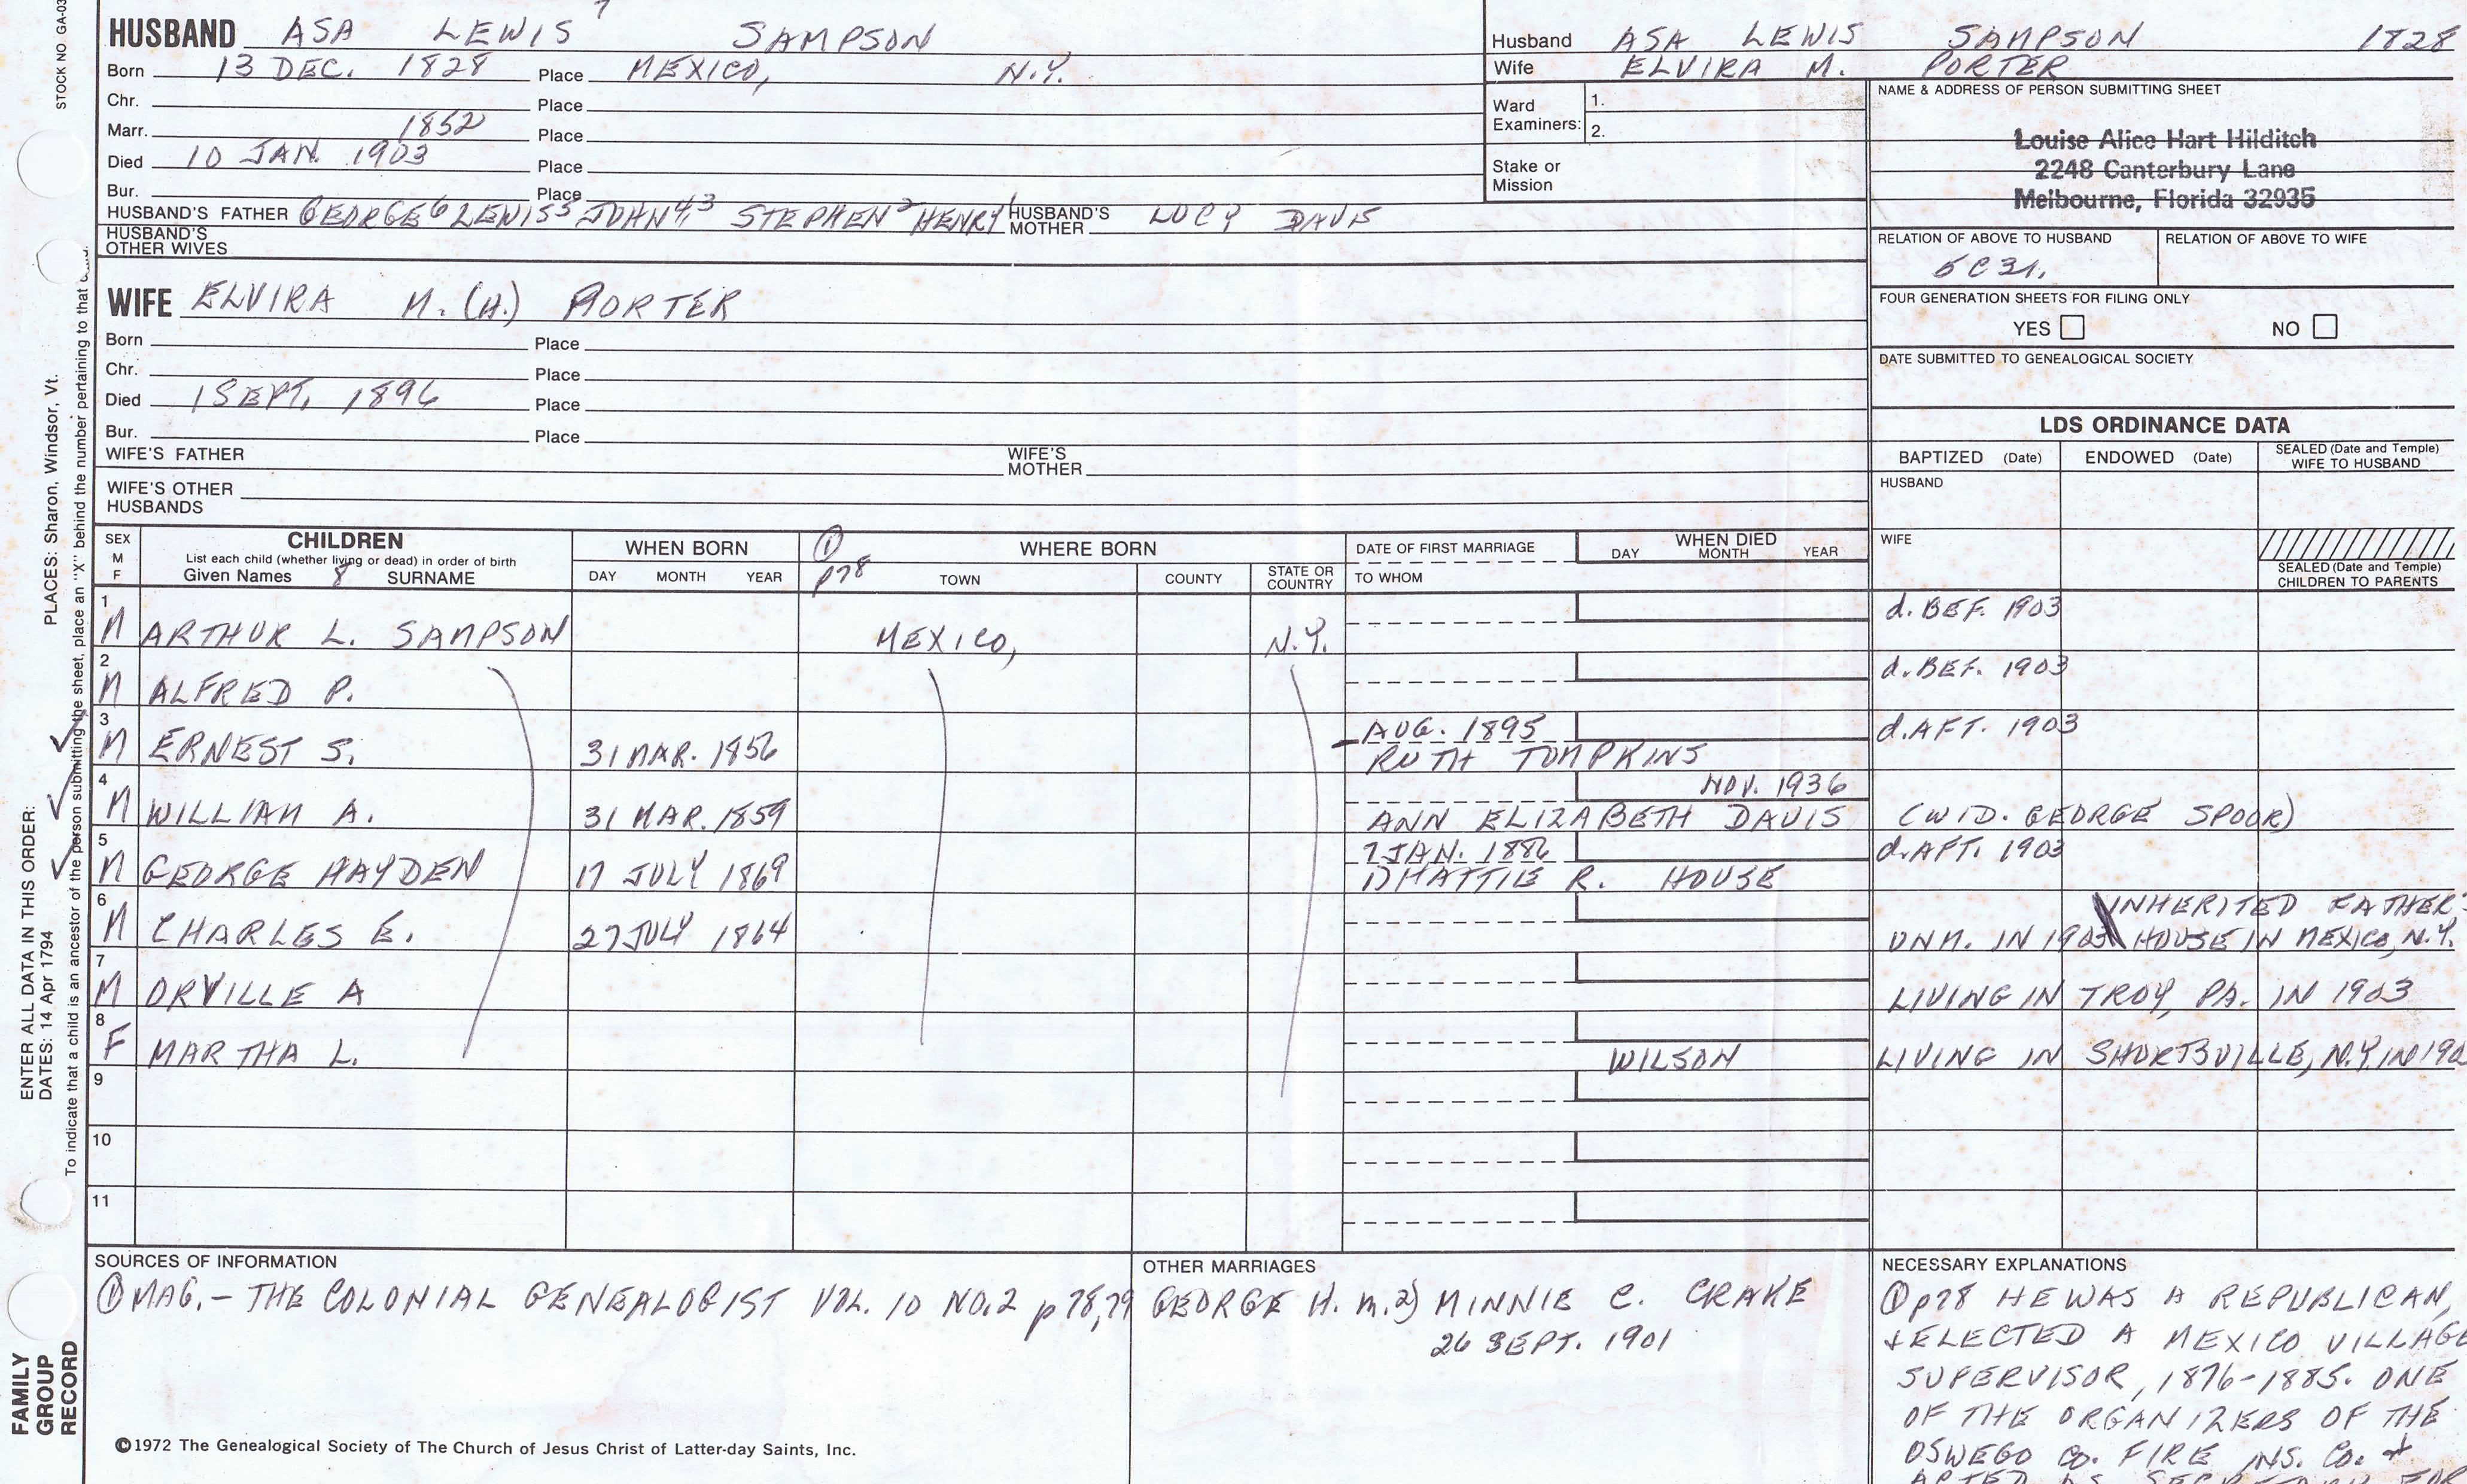 STOCK NO. GA-03
HUSBAND ASA LEWIS 7 SAMPSON
Born 13 DEC. 1828 Place MEXICO, N.Y.
Chr. Place
Marr. 1852 Place
Died 10 JAN. 1903 Place
Bur. Place
HUSBAND'S FATHER GEORGE 6 LEWIS 5 JOHN 4,3 STEPHEN 2 HENRY 1 HUSBAND'S MOTHER LUCY DAVIS
HUSBAND'S OTHER WIVES
Husband ASA LEWIS SAMPSON 1828
Wife ELVIRA M. PORTER
Ward Examiners: 1.
2.
Stake or Mission
NAME & ADDRESS OF PERSON SUBMITTING SHEET
Louise Alice Hart Hilditch
2248 Canterbury Lane
Melbourne, Florida 32935
RELATION OF ABOVE TO HUSBAND RELATION OF ABOVE TO WIFE
FOUR GENERATION SHEETS FOR FILING ONLY
YES NO
DATE SUBMITTED TO GENEALOGICAL SOCIETY
WIFE ELVIRA M. (A.) PORTER
Born Place
Chr. Place
Died 1 SEPT. 1896 Place
Bur. Place
WIFE'S FATHER WIFE'S MOTHER
WIFE'S OTHER HUSBANDS
LDS ORDINANCE DATA
BAPTIZED (Date) ENDOWED (Date) SEALED (Date and Temple) WIFE TO HUSBAND
HUSBAND
WIFE
SEALED (Date and Temple) CHILDREN TO PARENTS
SEX M F
CHILDREN
List each child (whether living or dead) in order of birth
Given Names 8 SURNAME
WHEN BORN
DAY MONTH YEAR
① p78
WHERE BORN
TOWN COUNTY STATE OR COUNTRY
DATE OF FIRST MARRIAGE
TO WHOM
WHEN DIED
DAY MONTH YEAR
1 M ARTHUR L. SAMPSON MEXICO, N.Y. d. BEF. 1903
2 M ALFRED P. d. BEF. 1903
3 M ERNEST S. 31 MAR. 1856 AUG. 1895 RUTH TOMPKINS d. AFT. 1903
4 M WILLIAM A. 31 MAR. 1859 NOV. 1936 ANN ELIZABETH DAVIS (WID. GEORGE SPOOR)
5 M GEORGE HAYDEN 17 JULY 1869 7 JAN. 1886 1) HATTIE R. HOUSE d. AFT. 1903
6 M CHARLES E. 27 JULY 1864 UNM. IN 1903 INHERITED FATHER'S HOUSE IN MEXICO, N.Y.
7 M ORVILLE A LIVING IN TROY, PA. IN 1903
8 F MARTHA L. WILSON LIVING IN SHORTSVILLE, N.Y. IN 190
9
10
11
SOURCES OF INFORMATION
① MAG. - THE COLONIAL GENEALOGIST VOL. 10 NO. 2 p 78, 79
OTHER MARRIAGES
GEORGE H. m. 2) MINNIE C. CRAKE
26 SEPT. 1901
NECESSARY EXPLANATIONS
① p78 HE WAS A REPUBLICAN,
+ ELECTED A MEXICO VILLAGE
SUPERVISOR, 1876-1885. ONE
OF THE ORGANIZERS OF THE
OSWEGO CO. FIRE INS. CO. +
ACTED AS SECRETARY FOR
©1972 The Genealogical Society of The Church of Jesus Christ of Latter-day Saints, Inc.
FAMILY GROUP RECORD
ENTER ALL DATA IN THIS ORDER:
DATES: 14 Apr 1794
PLACES: Sharon, Windsor, Vt.
To indicate that a child is an ancestor of the person submitting the sheet, place an "X" behind the number pertaining to that